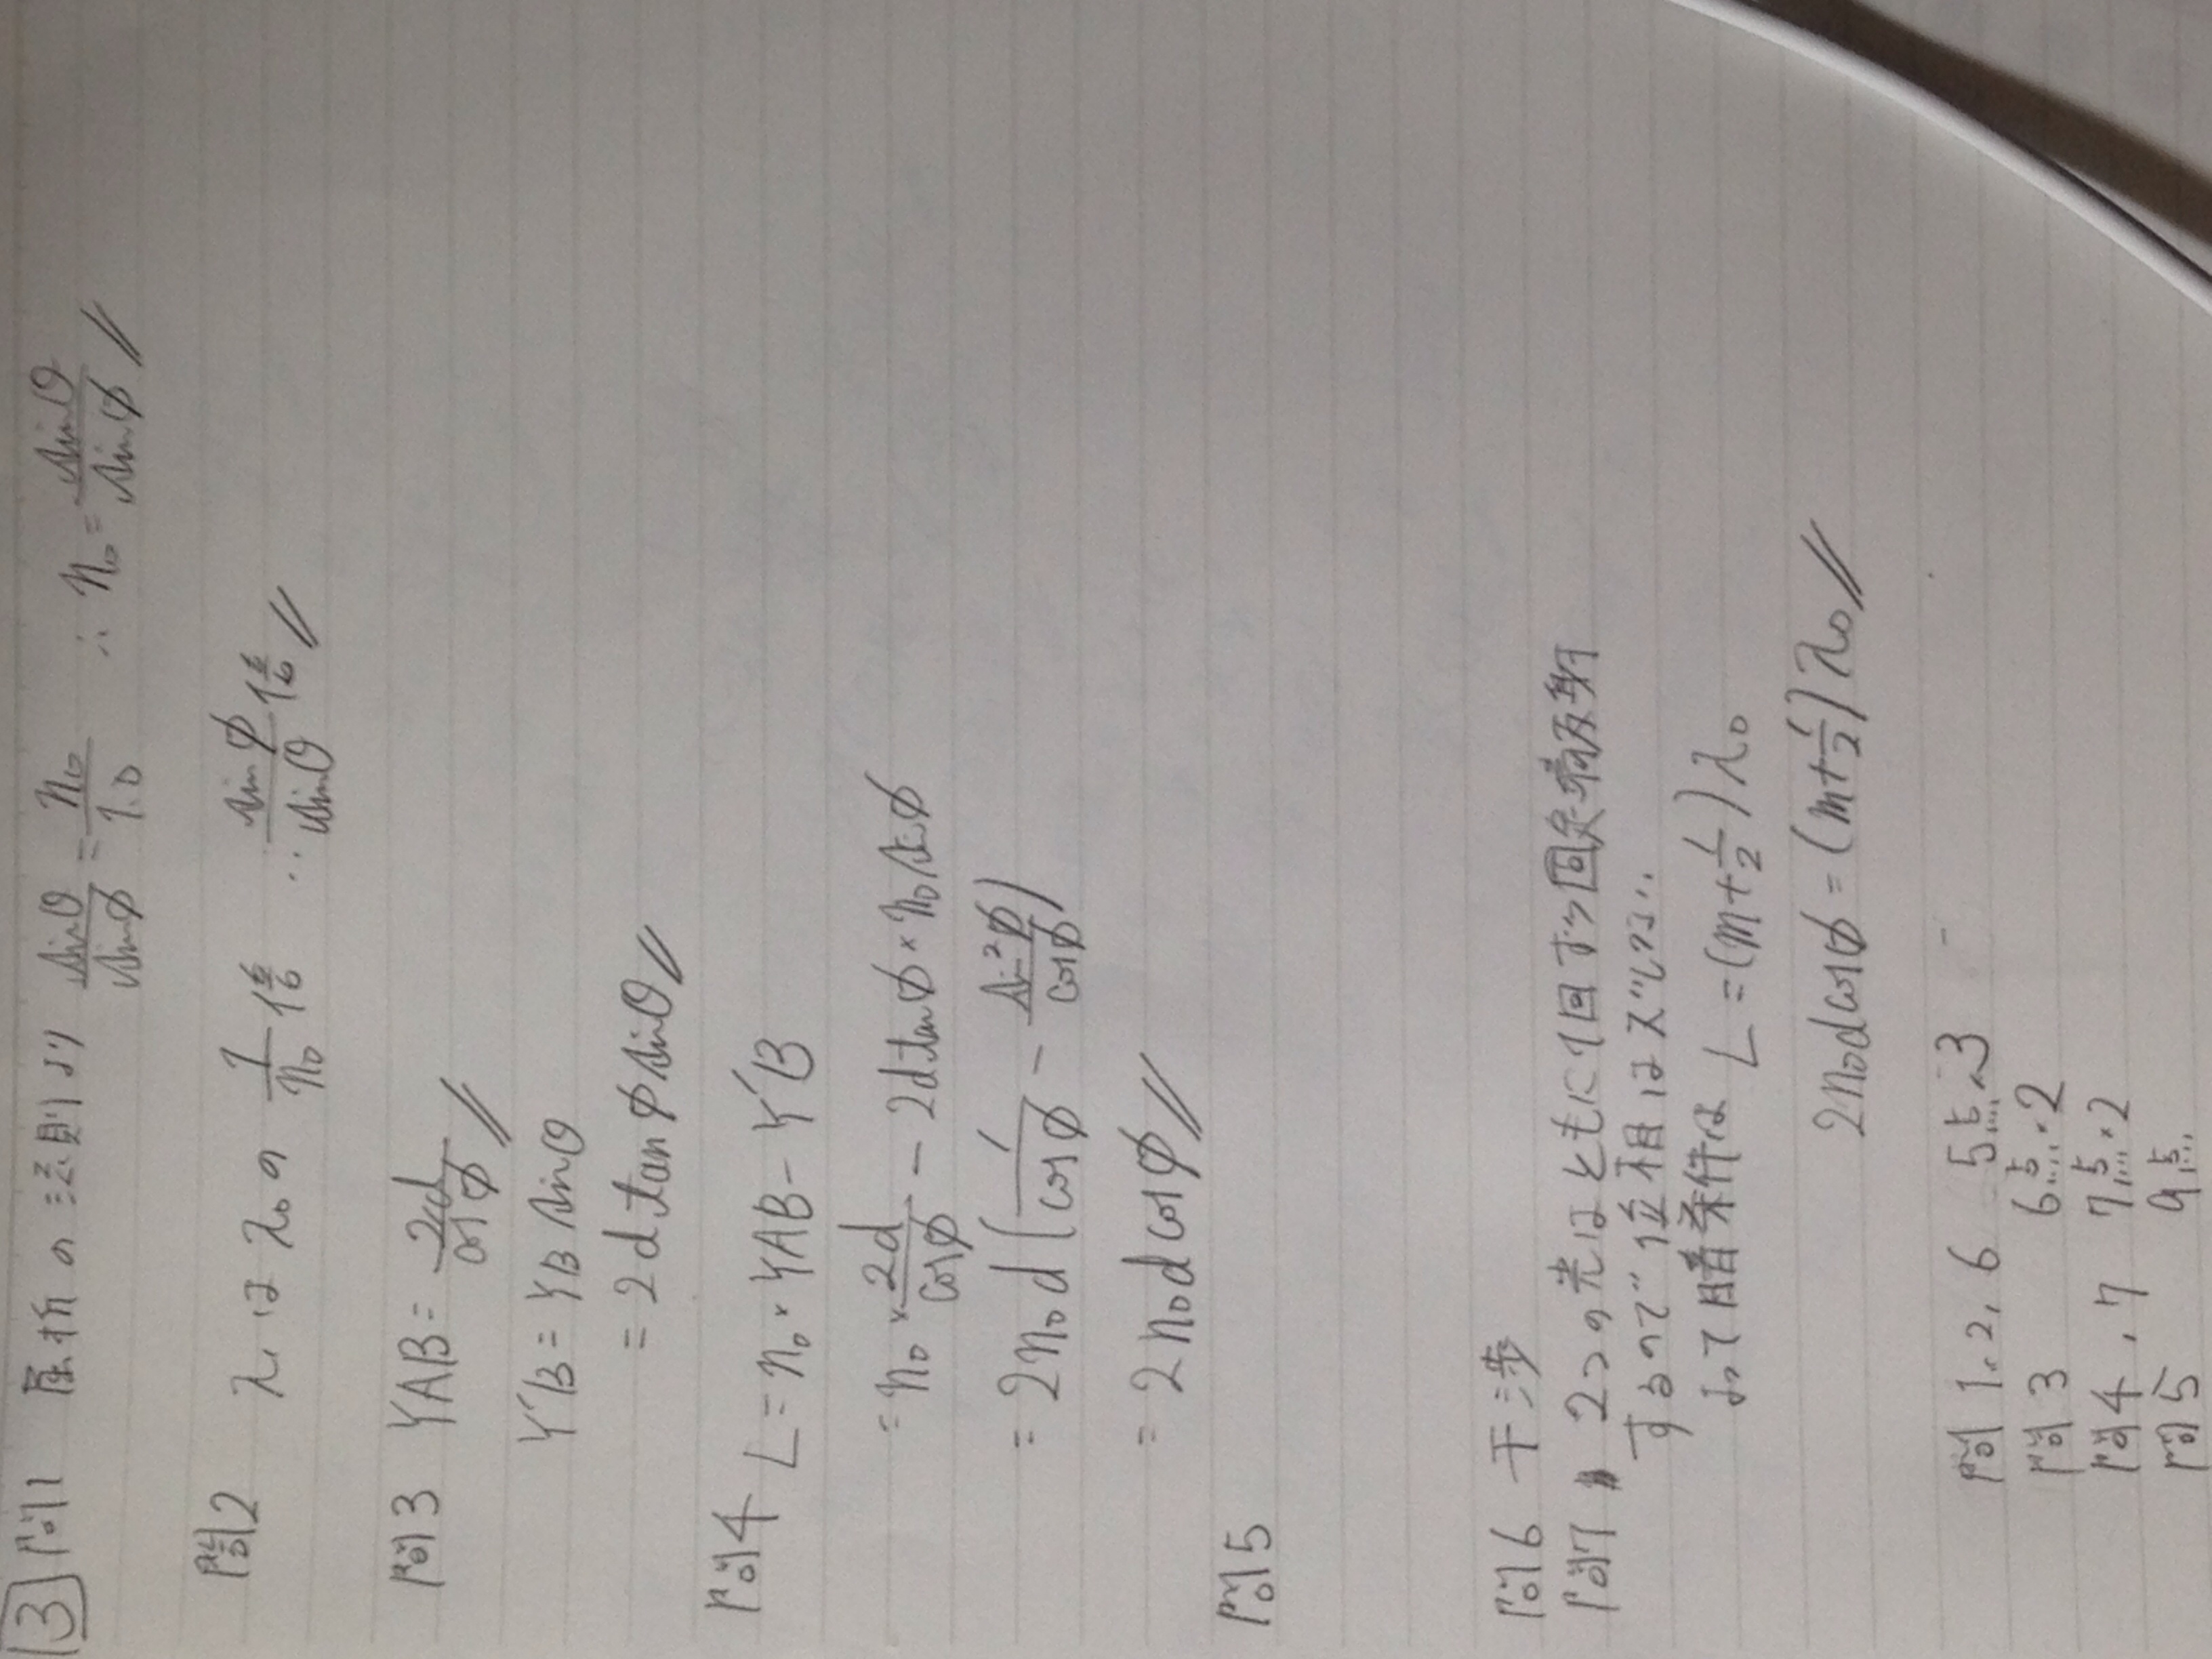 3 問1 屈折の法則より sinθ/sinφ = n₀/1.0 ∴ n₀ = sinθ/sinφ //
問2 λ₁は λ₀の 1/n₀ 倍 ∴ sinφ/sinθ 倍 //
問3 YAB = 2d/cosφ //
Y'B = YB sinθ
= 2d tanφ sinθ //
問4 L = n₀・YAB - Y'B
= n₀ × 2d/cosφ - 2d tanφ × n₀ sinφ
= 2n₀d (1/cosφ - sin²φ/cosφ)
= 2n₀d cosφ //
問5
問6 干渉
問7 2つの光はともに1回ずつ固定端反射
するので位相は
よって暗条件は L = (m + 1/2) λ₀
2n₀d cosφ = (m + 1/2) λ₀ //
問1, 2, 6 5点×3
問3 6点×2
問4, 7 7点×2
問5 9点